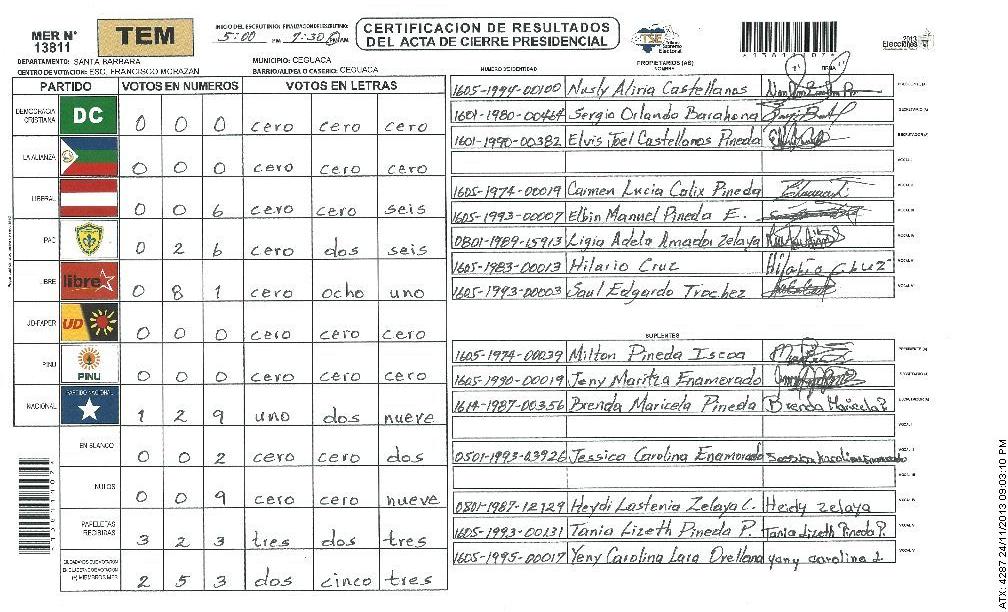 MER N° 13811
TEM
INICIO DEL ESCRUTINIO: FINALIZACION DEL ESCRUTINIO:
5:00 PM 7:30 PM AM
CERTIFICACION DE RESULTADOS
DEL ACTA DE CIERRE PRESIDENCIAL
TSE Tribunal Supremo Electoral
2013
Elecciones
DEPARTAMENTO: SANTA BARBARA
MUNICIPIO: CEGUACA
CENTRO DE VOTACION: ESC. FRANCISCO MORAZAN
BARRIO/ALDEA O CASERIO: CEGUACA
PARTIDO VOTOS EN NUMEROS VOTOS EN LETRAS
DEMOCRACIA CRISTIANA DC 0 0 0 cero cero cero
LA ALIANZA 0 0 0 cero cero cero
LIBERAL 0 0 6 cero cero seis
PAC 0 2 6 cero dos seis
LIBRE libre 0 8 1 cero ocho uno
UD-FAPER UD 0 0 0 cero cero cero
PINU PINU 0 0 0 cero cero cero
NACIONAL PARTIDO NACIONAL 1 2 9 uno dos nueve
EN BLANCO 0 0 2 cero cero dos
NULOS 0 0 9 cero cero nueve
PAPELETAS RECIBIDAS 3 2 3 tres dos tres
2 5 3 dos cinco tres
NUMERO DE IDENTIDAD PROPIETARIOS (AS) NOMBRE FIRMA
1605-1994-00100 Nusly Aliria Castellanos PRESIDENTE (A)
1601-1980-00464 Sergio Orlando Barahona SECRETARIO (A)
1601-1990-00382 Elvis Joel Castellanos Pineda ESCRUTADOR (A)
VOCAL I
1605-1974-00019 Carmen Lucia Calix Pineda VOCAL II
1605-1993-00007 Elbin Manuel Pineda E. VOCAL III
0801-1989-15913 Ligia Adela Amador Zelaya VOCAL IV
1605-1983-00013 Hilario Cruz Hilario Cruz VOCAL V
1605-1993-00003 Saul Edgardo Trochez VOCAL VI
SUPLENTES
1605-1974-00039 Milton Pineda Iscoa PRESIDENTE (A)
1605-1990-00019 Jeny Maritza Enamorado SECRETARIO (A)
1614-1987-00356 Brenda Maricela Pineda Brenda Maricela P. ESCRUTADOR (A)
VOCAL I
0501-1993-03926 Jessica Carolina Enamorado VOCAL II
VOCAL III
0801-1987-12129 Heydi Lastenia Zelaya C. Heidy Zelaya VOCAL IV
1605-1993-00131 Tania Lizeth Pineda P. Tania Lizeth Pineda P. VOCAL V
1605-1995-00017 Yeny Carolina Lara Orellana yany carolina L. VOCAL VI
ATX: 4287 24/11/2013 09:03:10 PM